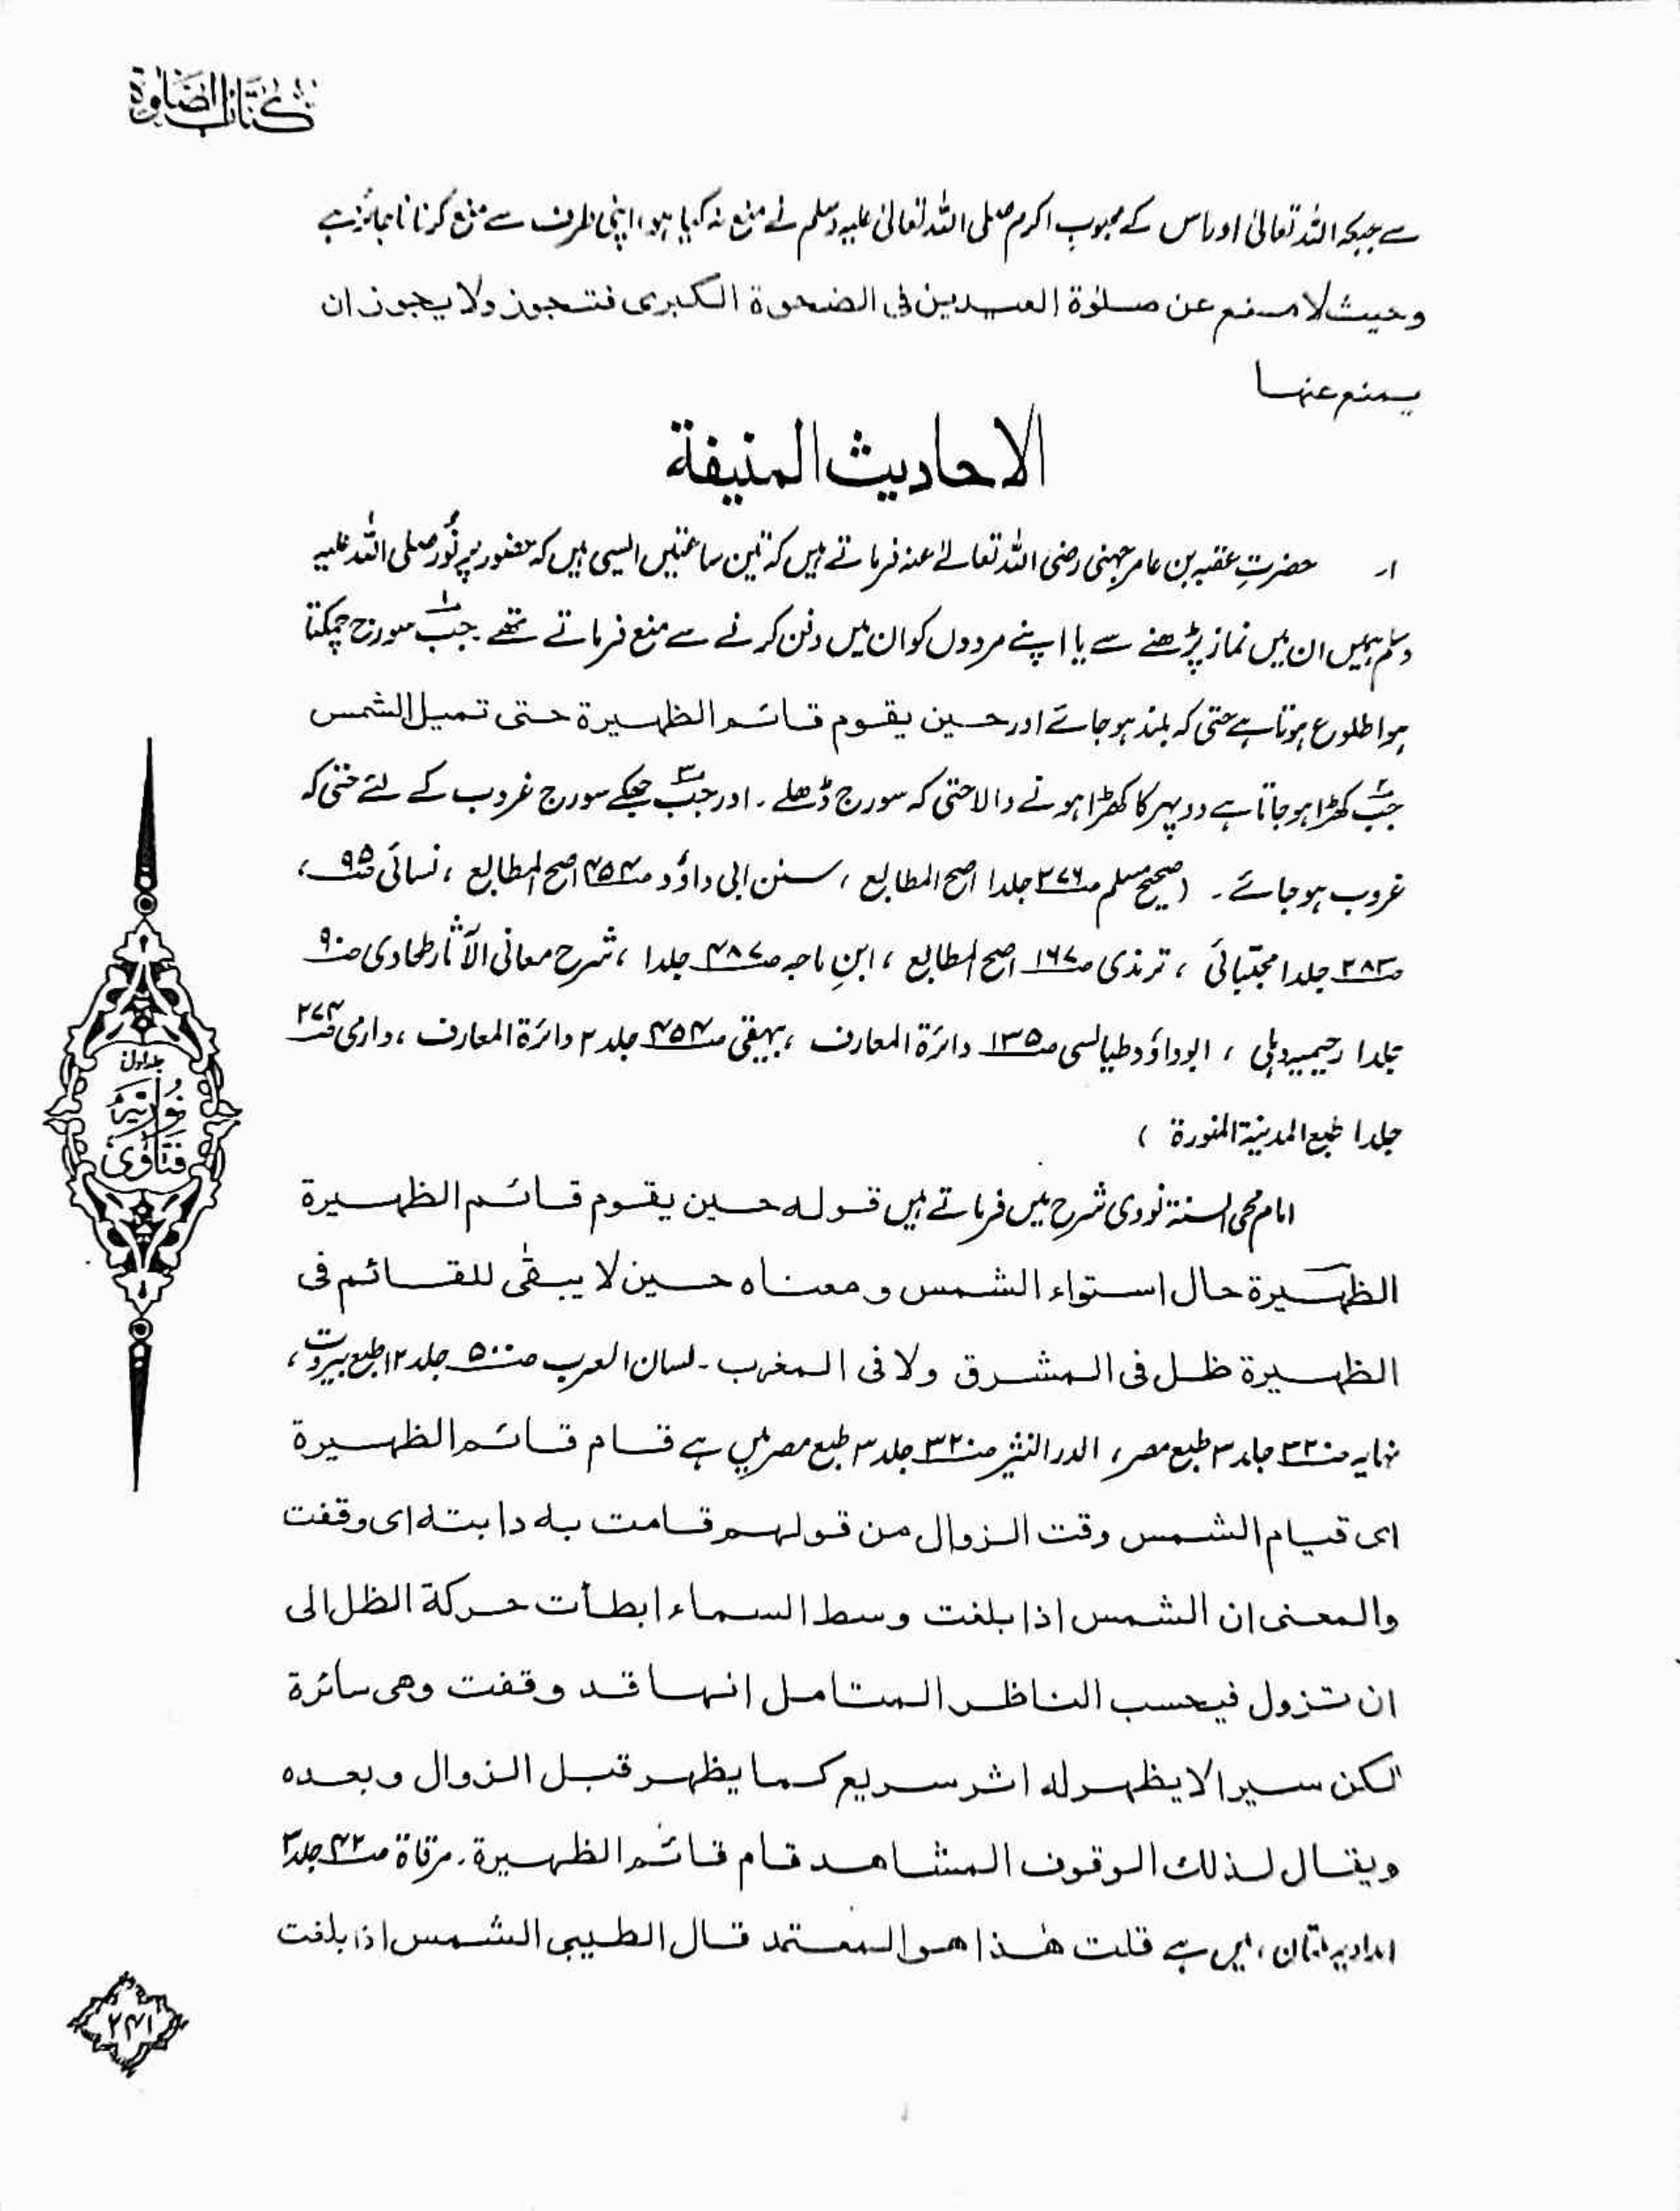 كتاب الصلوة
سے جبکہ اللہ تعالیٰ اور اس کے محبوب اکرم صلی اللہ تعالیٰ علیہ وسلم نے منع نہ کیا ہو، اپنی طرف سے منع کرنا ناجائز ہے
وحیث لا منع عن صلوٰة العیدین فی الضحوة الکبریٰ فتجوز ولا یجوز ان
یمنع عنہا
الاحادیث المنیفة
۱۔ حضرتِ عقبہ بن عامر جہنی رضی اللہ تعالےٰ عنہ فرماتے ہیں کہ تین ساعتیں ایسی ہیں کہ حضور پر نُور صلی اللہ علیہ
وسلم ہمیں ان میں نماز پڑھنے سے یا اپنے مردوں کو ان میں دفن کرنے سے منع فرماتے تھے۔ جب۱ سورج چمکتا
ہوا طلوع ہوتا ہے حتی کہ بلند ہو جائے اور حین یقوم قائم الظہیرة حتی تمیل الشمس
جب۲ کھڑا ہو جاتا ہے دوپہر کا کھڑا ہونے والا حتی کہ سورج ڈھلے۔ اور جب۳ جھکے سورج غروب کے لئے حتی کہ
غروب ہو جائے۔ (صحیح مسلم ص۲۷۶ جلد۱ اصح المطابع، سنن ابی داؤد ص۴۵۴ اصح المطابع، نسائی ص۹۵،
ص۲۸۳ جلد۱ مجتبائی، ترمذی ص۱۶۷ اصح المطابع، ابنِ ماجہ ص۴۸۷ جلد۱، شرح معانی الآثار طحاوی ص۹۰
جلد۱ رحیمیہ دہلی، ابوداؤد طیالسی ص۱۳۵ دائرة المعارف، بیہقی ص۴۵۴ جلد۲ دائرة المعارف، دارمی ص۲۷۴
جلد۱ طبع المدینة المنورة)
امام محی السنة نووی شرح میں فرماتے ہیں قولہ حین یقوم قائم الظہیرة
الظہیرة حال استواء الشمس و معناہ حین لا یبقٰی للقائم فی
الظہیرة ظل فی المشرق ولا فی المغرب۔ لسان العرب ص۵۰۰ جلد۱۲ طبع بیروت،
نہایہ ص۳۲۰ جلد۳ طبع مصر، الدر النثیر ص۳۲۰ جلد۳ طبع مصر میں ہے قام قائم الظہیرة
ای قیام الشمس وقت الزوال من قولہم قامت بہ دابتہ ای وقفت
والمعنی ان الشمس اذا بلغت وسط السماء ابطأت حرکة الظل الی
ان تزول فیحسب الناظر المتامل انہا قد وقفت وھی سائرة
لکن سیرا لا یظہر لہ اثر سریع کما یظہر قبل الزوال وبعدہ
ویقال لذلك الوقوف المشاھد قام قائم الظہیرة۔ مرقاة ص۴۲ جلد۳
امدادیہ ملتان، میں ہے قلت ھٰذا ھو المعتمد قال الطیبی الشمس اذا بلغت
جلد اول
فتاوی نوریہ
۲۴۱